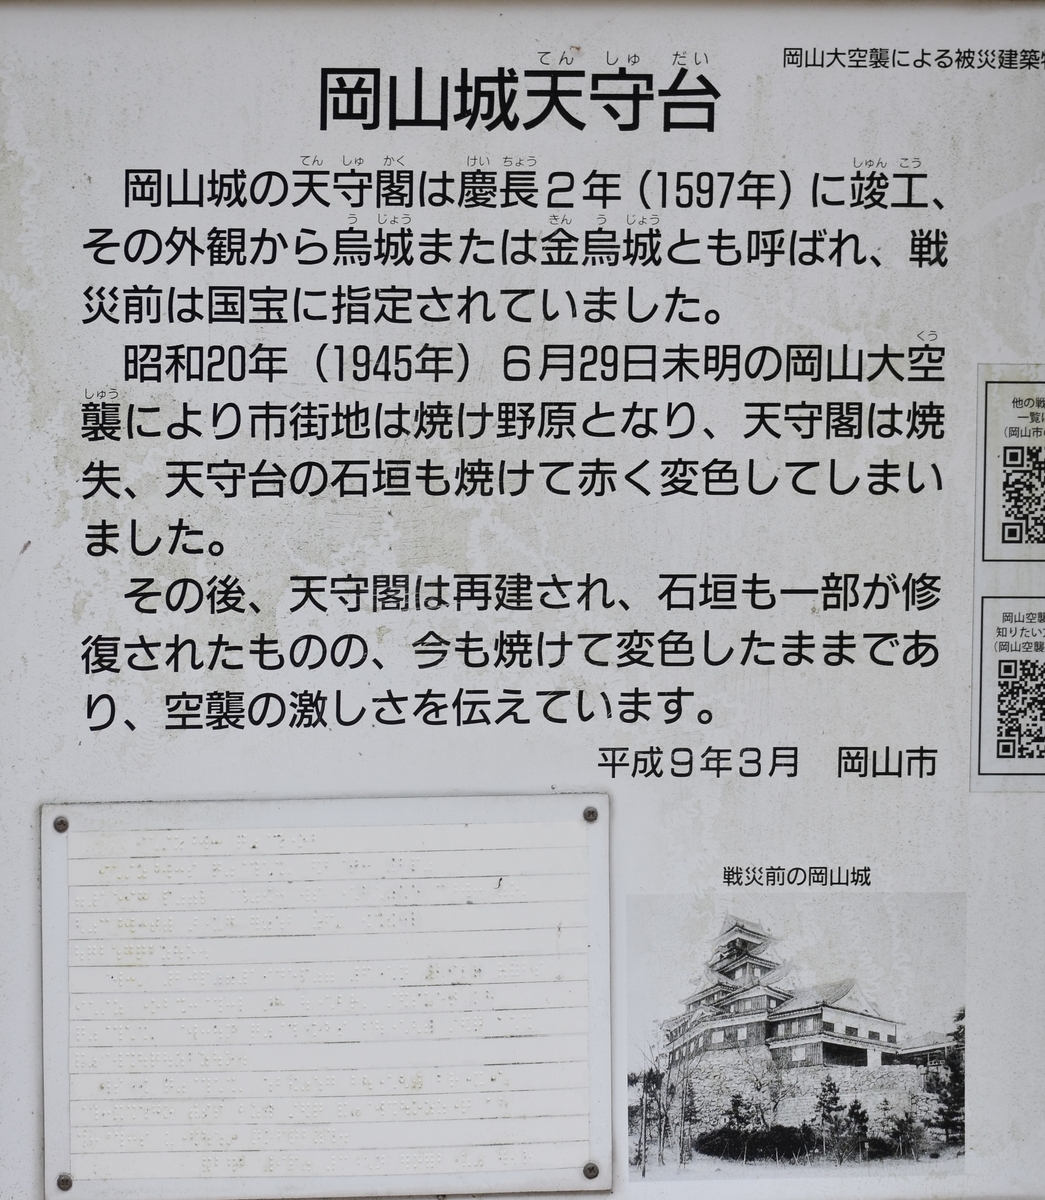 岡山大空襲による被災建築
岡山城天守台
てん しゅ だい
岡山城の天守閣は慶長2年(1597年)に竣工、
てん しゅ かく けい ちょう しゅん こう
その外観から烏城または金烏城とも呼ばれ、戦
う じょう きん う じょう
災前は国宝に指定されていました。
昭和20年(1945年)6月29日未明の岡山大空
くう
襲により市街地は焼け野原となり、天守閣は焼
しゅう
失、天守台の石垣も焼けて赤く変色してしまい
ました。
その後、天守閣は再建され、石垣も一部が修
復されたものの、今も焼けて変色したままであ
り、空襲の激しさを伝えています。
平成9年3月 岡山市
戦災前の岡山城
他の戦
一覧
(岡山市
岡山空襲
知りたい
(岡山空襲